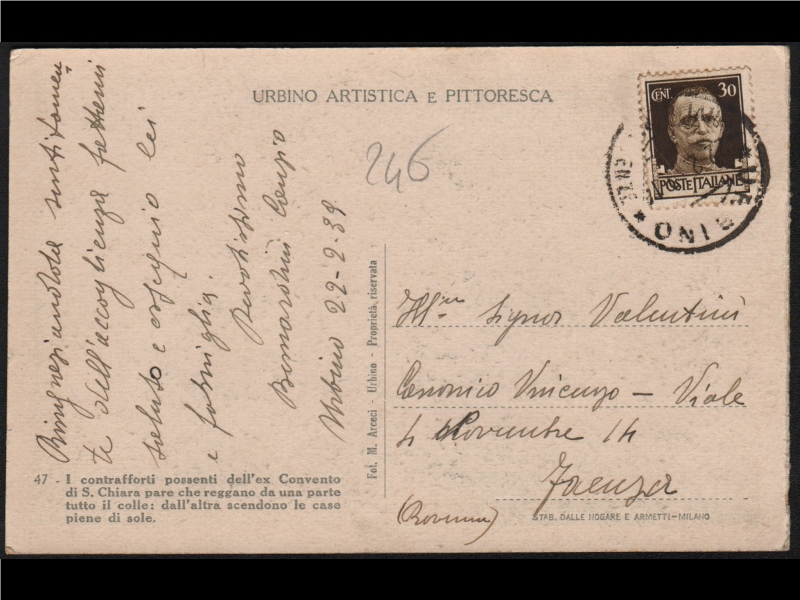 URBINO ARTISTICA E PITTORESCA
CENT. 30
POSTE ITALIANE
URBINO
246
Ringraziandola sentitamen
te dell'accoglienza fattemi
saluto e ossequio lei
e famiglia.
Devotissimo
Urbino 22-2-39
Fot. M. Arceci - Urbino - Proprietà riservata
Ill.mo Signor Valentini
Canonico Vincenzo - Viale
4 Novembre 14
Faenza
(Ravenna)
47 - I contrafforti possenti dell'ex Convento
di S. Chiara pare che reggano da una parte
tutto il colle: dall'altra scendono le case
piene di sole.
STAB. DALLE NOGARE E ARMETTI-MILANO